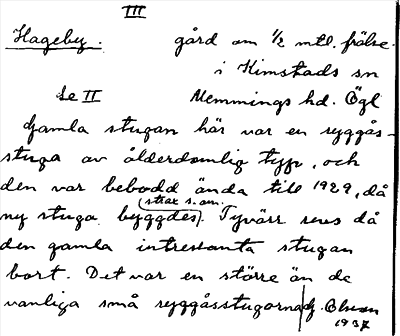 III
Hageby. gård om 1/2 mtl. frälse.
i Kimstads sn
Se II Memmings hd. Ögl
Gamla stugan här var en ryggås-
stuga av ålderdomlig typ, och
den var bebodd ända till 1929, då
ny stuga byggdes (strax s. om.). Tyvärr revs då
den gamla intressanta stugan
bort. Det var en större än de
vanliga små ryggåsstugorna. G. Olsson
1937